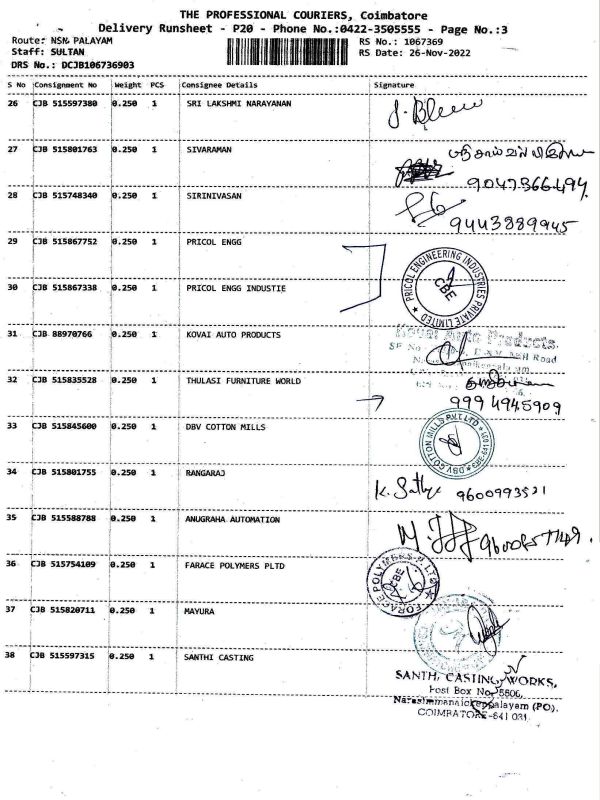 THE PROFESSIONAL COURIERS, Coimbatore
Delivery Runsheet - P20 - Phone No.:0422-3505555 - Page No.:3
Route: NSN PALAYAM RS No.: 1067369
Staff: SULTAN RS Date: 26-Nov-2022
DRS No.: DCJB106736903
S No Consignment No Weight PCS Consignee Details Signature
26 CJB 515597380 0.250 1 SRI LAKSHMI NARAYANAN
27 CJB 515801763 0.250 1 SIVARAMAN
9047366494
28 CJB 515748340 0.250 1 SIRINIVASAN
9443889945
29 CJB 515867752 0.250 1 PRICOL ENGG
PRICOL ENGINEERING INDUSTRIES PRIVATE LIMITED
CBE
30 CJB 515867338 0.250 1 PRICOL ENGG INDUSTIE
31 CJB 88970766 0.250 1 KOVAI AUTO PRODUCTS
Kovai Auto Products
SF No Road
32 CJB 515835528 0.250 1 THULASI FURNITURE WORLD
9994945909
33 CJB 515845600 0.250 1 DBV COTTON MILLS
DBV COTTON MILLS PVT LTD
34 CJB 515801755 0.250 1 RANGARAJ
K. Sathya 9600993521
35 CJB 515588788 0.250 1 ANUGRAHA AUTOMATION
36 CJB 515754109 0.250 1 FARACE POLYMERS PLTD
FORACE POLYMERS P. LTD
CBE
37 CJB 515820711 0.250 1 MAYURA
38 CJB 515597315 0.250 1 SANTHI CASTING
SANTHI CASTING WORKS,
Post Box No. 5606,
Narasimmanaickenpalayam (PO),
COIMBATORE-641 031.